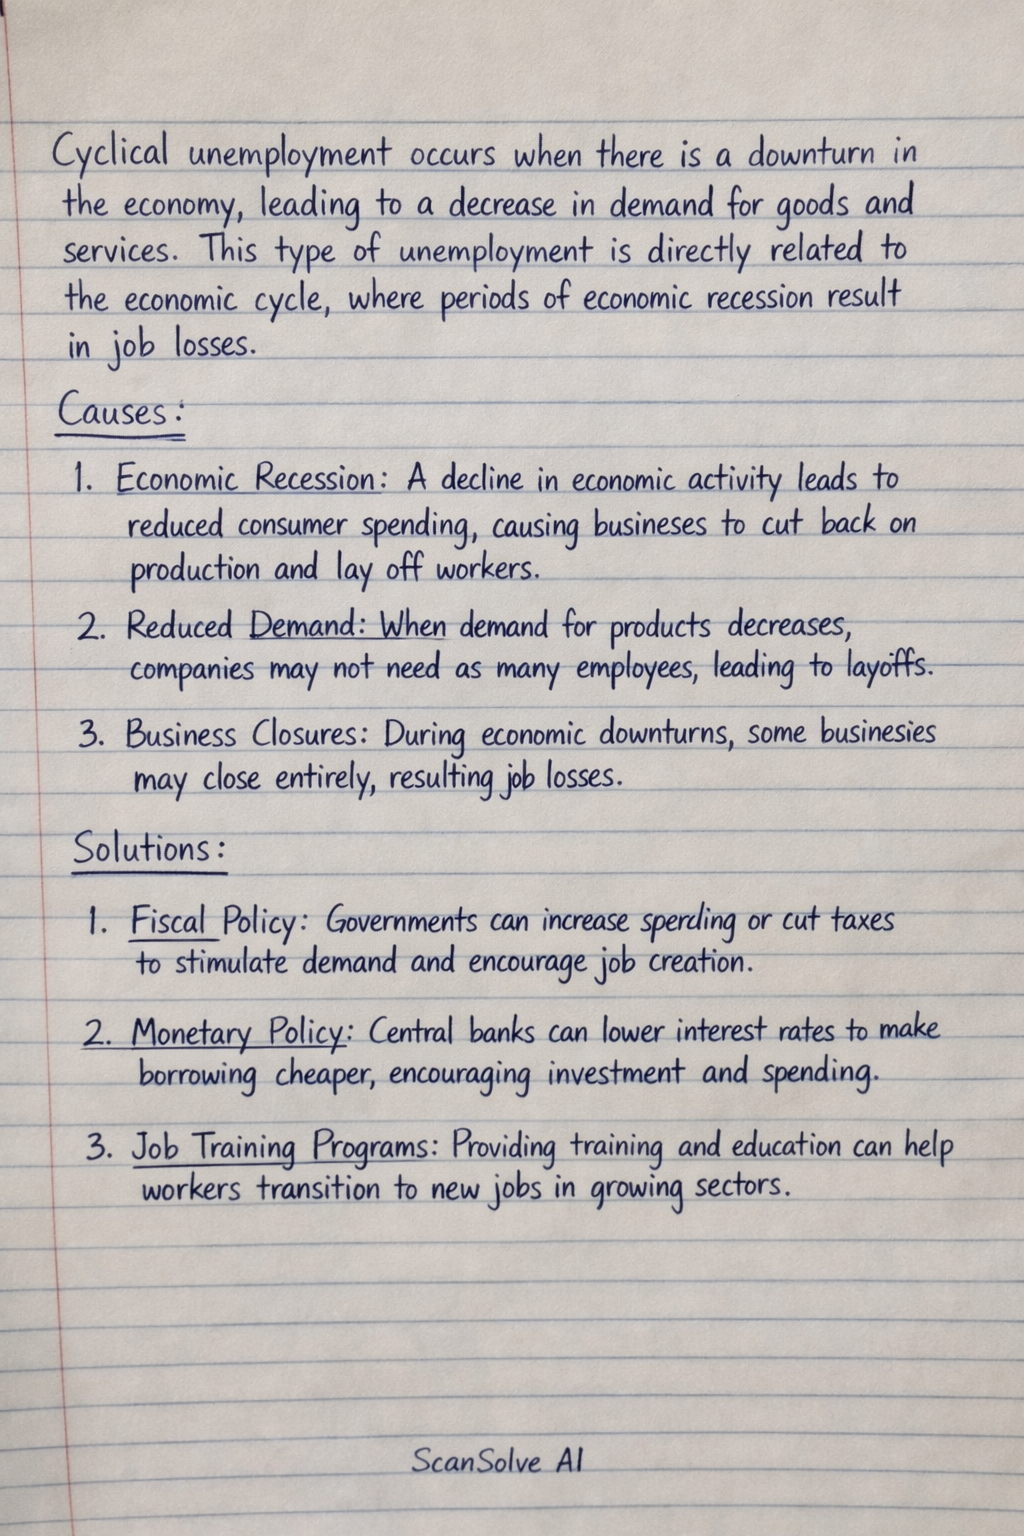 Cyclical unemployment occurs when there is a downturn in
the economy, leading to a decrease in demand for goods and
services. This type of unemployment is directly related to
the economic cycle, where periods of economic recession result
in job losses.
Causes:
1. Economic Recession: A decline in economic activity leads to
reduced consumer spending, causing busineses to cut back on
production and lay off workers.
2. Reduced Demand: When demand for products decreases,
companies may not need as many employees, leading to layoffs.
3. Business Closures: During economic downturns, some businesies
may close entirely, resulting job losses.
Solutions:
1. Fiscal Policy: Governments can increase sperding or cut taxes
to stimulate demand and encourage job creation.
2. Monetary Policy: Central banks can lower interest rates to make
borrowing cheaper, encouraging investment and spending.
3. Job Training Programs: Providing training and education can help
workers transition to new jobs in growing sectors.
ScanSolve AI